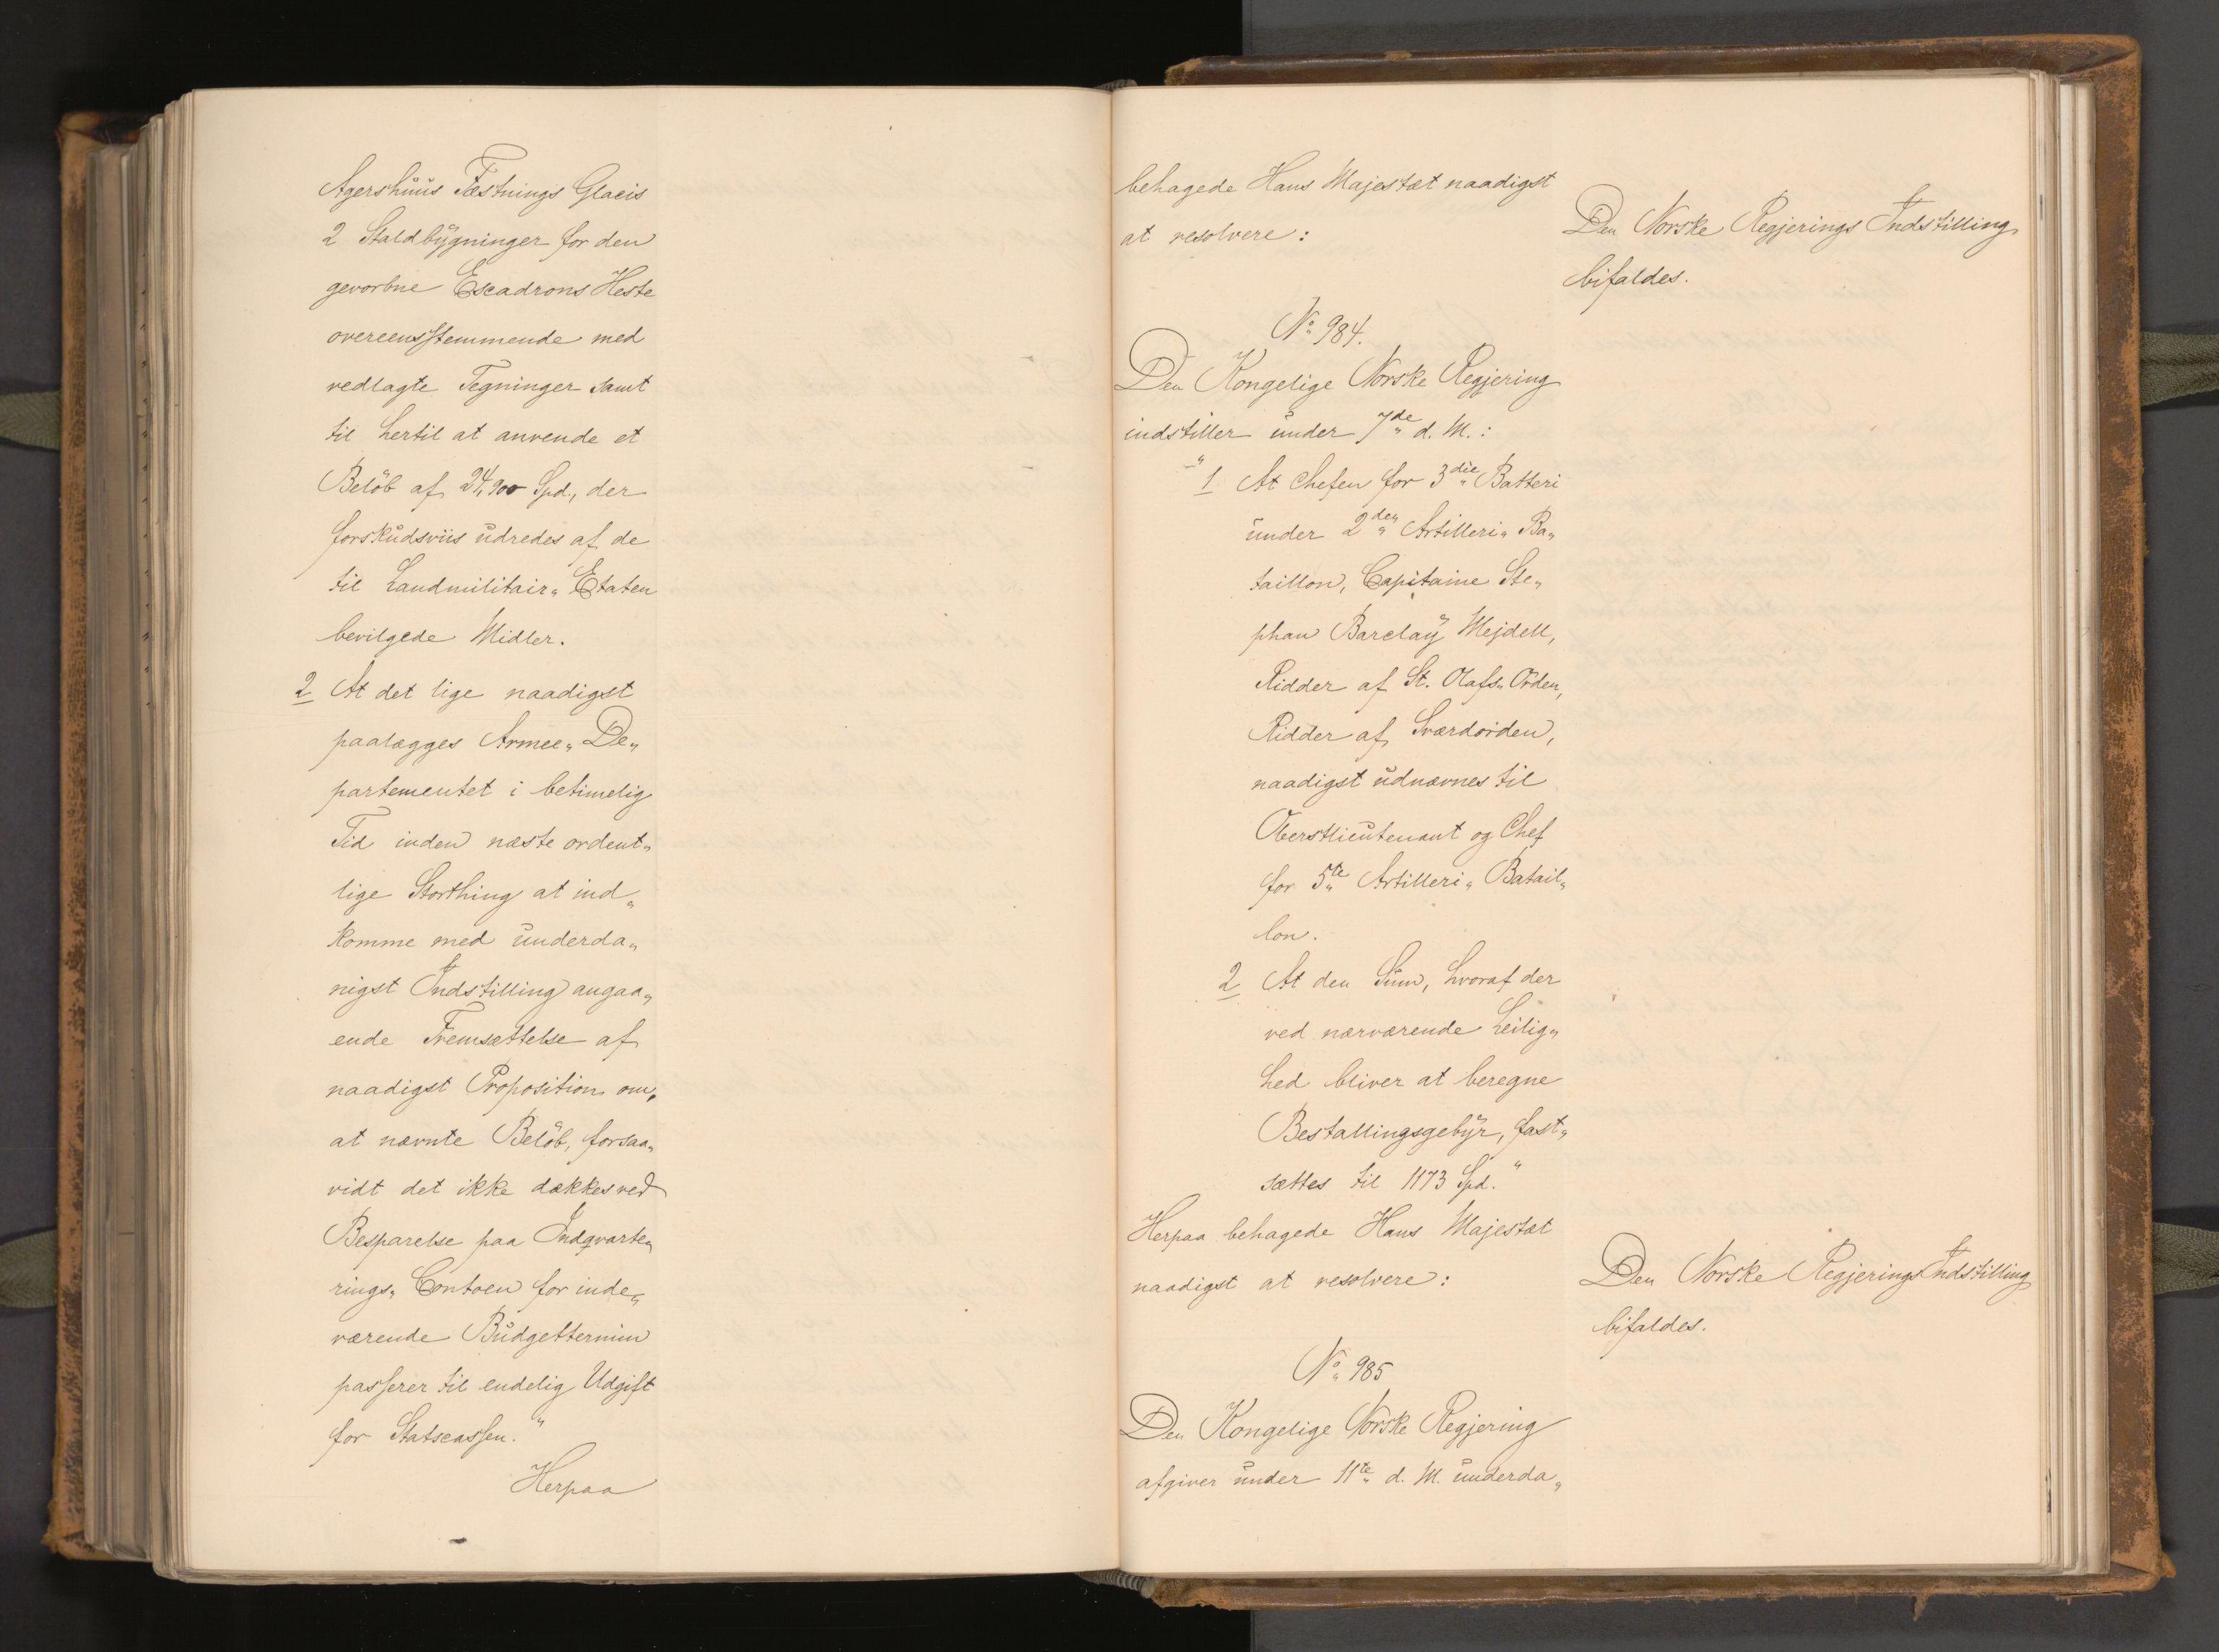 Agershuus Fæstnings Glacis
2 Staldbygninger for den
gevorbne Escadrons Heste
overeensstemmende med
vedlagte Tegninger samt
til hertil at anvende et
Beløb af 24,900 Spd., der
forskudsviis udredes af de
til Landmilitair„ Etaten
bevilgede Midler.
2 At det lige naadigst
paalægges Armee„ De„
partementet i betimelig
Tid inden næste ordent„
lige Storthing at ind„
komme med underda„
nigst Indstilling angaa„
ende Fremsættelse af
naadigst Proposition om,
at nævnte Beløb, forsaa„
vidt det ikke dækkes ved
Besparelse paa Indqvarte„
rings„ Contoen for inde„
værende Budgettermin
passerer til endelig Udgift
for Statscassen."
Herpaa
behagede Hans Majestæt naadigst
at resolvere:
Den Norske Regjerings Indstilling
bifaldes.
No 984.
Den Kongelige Norske Regjering
indstiller under 7de d. M.:
"1 At Chefen for 3die Batteri
under 2den Artilleri„ Ba„
taillon, Capitaine Ste„
phan Barclay Mejdell,
Ridder af St. Olafs„ Orden,
Ridder af Sværdorden,
naadigst udnævnes til
Oberstlieutenant og Chef
for 5te Artilleri„ Batail„
lon.
2 At den Sum, hvoraf der
ved nærværende Leilig„
hed bliver at beregne
Bestallingsgebyr, fast„
sættes til 1173 Spd."
Herpaa behagede Hans Majestæt
naadigst at resolvere:
Den Norske Regjerings Indstilling
bifaldes.
No 985
Den Kongelige Norske Regjering
afgiver under 11te d. M. underda„